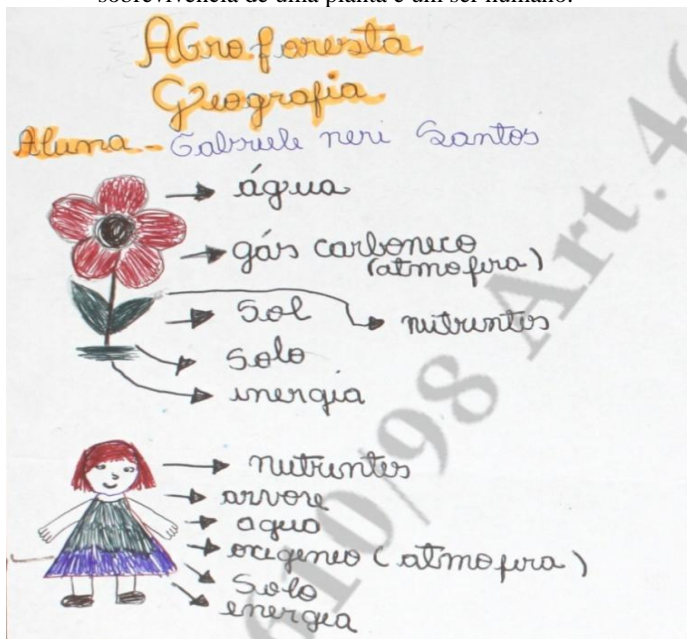 sobrevivência de uma planta e um ser humano.
Agroforesta
Geografia
Aluna - Gabriele neri Santos
água
gás carboneco
(atmofera)
Sol
nutrintes
Solo
energia
nutrintes
arvore
agua
oxigeneo (atmofera)
Solo
energia
610/98 Art.46